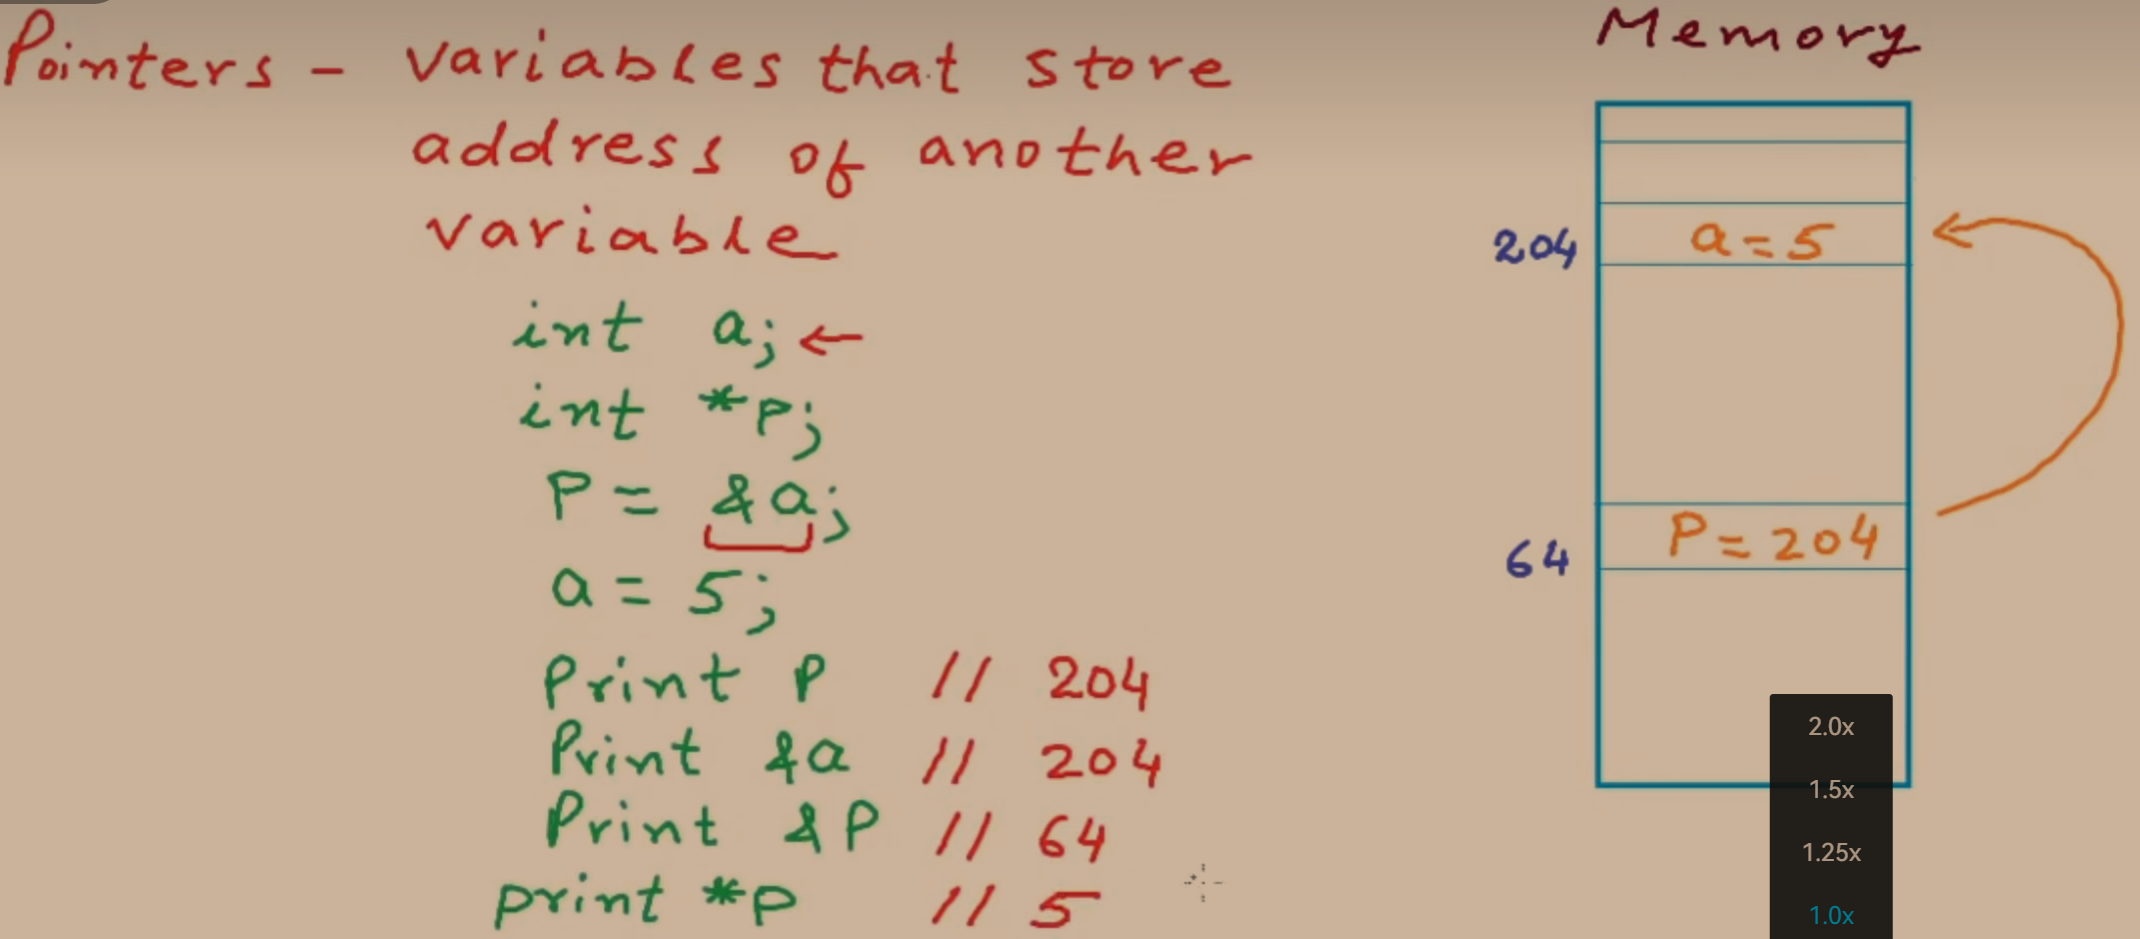 Pointers - variables that store
address of another
variable
int a; ←
int *p;
P = &a;
a = 5;
Print P // 204
Print &a // 204
Print &P // 64
print *p // 5
Memory
204 a = 5
64 P = 204
2.0x
1.5x
1.25x
1.0x